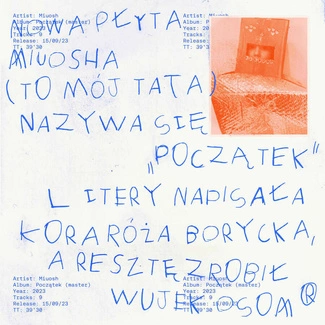 NOWA PŁYTA
MIUOSHA
(TO MÓJ TATA)
NAZYWA SIĘ
„POCZĄTEK"
LITERY NAPISAŁA
KORA RÓŻA BORYCKA,
A RESZTĘ ZROBIŁ
WUJEK OSOM ®
Artist: Miuosh
Album: Początek (master)
Year: 2023
Tracks: 9
Release: 15/09/23
TT: 39'30
Artist: Miuosh
Album: P
Year: 20
Tracks:
Release:
TT: 3
Artist: Miuosh
Album: Początek (master)
Year: 2023
Tracks: 9
Release: 15/09/23
TT: 39'30
Artist: Miuosh
Album: Początek (master)
Year: 2023
Tracks: 9
Release: 15/09/23
TT: 39'30